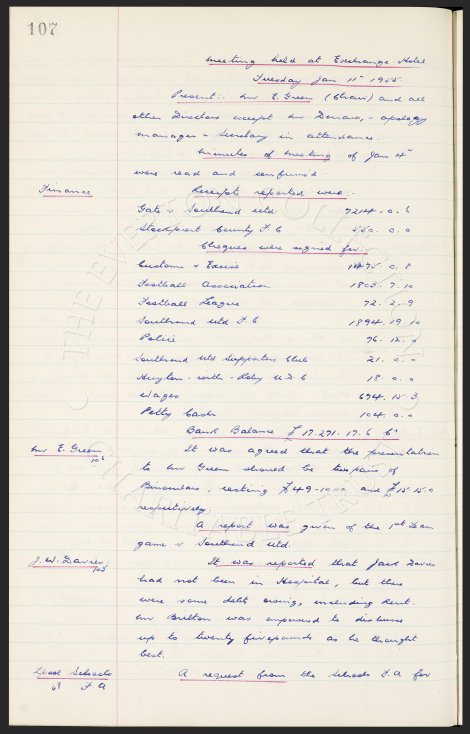 107
Meeting held at Exchange Hotel
Tuesday Jan 11th 1955
Present:- Mr E. Green (Chair) and all
other Directors except Mr - apology
manager & Secretary in attendance.
Minutes of meeting of Jan 4th
were read and confirmed.
Finance
Receipts reported were:-
Gate v Southend Utd 7214. 0. 6
Stockport County F.C 550. 0. 0
Cheques were signed for:-
Customs & Excise 0. 8
Football Association 1803. 7. 10
Football League 72. 2. 9
Southend Utd F.C 1894. 19. 10
Police 76. 12. 0
Southend Utd Supporters Club 21. 0. 0
Huyton-with-Roby U.D.C 18. 0. 0
Wages 674. 15. 3
Petty Cash 104. 0. 0
Bank Balance £17.271. 17. 6
Mr E. Green
106
It was agreed that the presentation
to Mr Green should be two pairs of
Binoculars, costing £49-10-0 and £15.15.0
respectively.
A report was given of the 1st Team
game v Southend Utd.
J. W. Davies
105
It was reported that Jack Davies
had not been in Hospital, but there
were some debts owing, including Rent.
Mr Britton was empowered to disburse
up to twenty five pounds as he thought
best.
Lpool Schools
F A
A request from the Schools F.A for
THE EVERTON COLLECTION
CHARITABLE TRUST